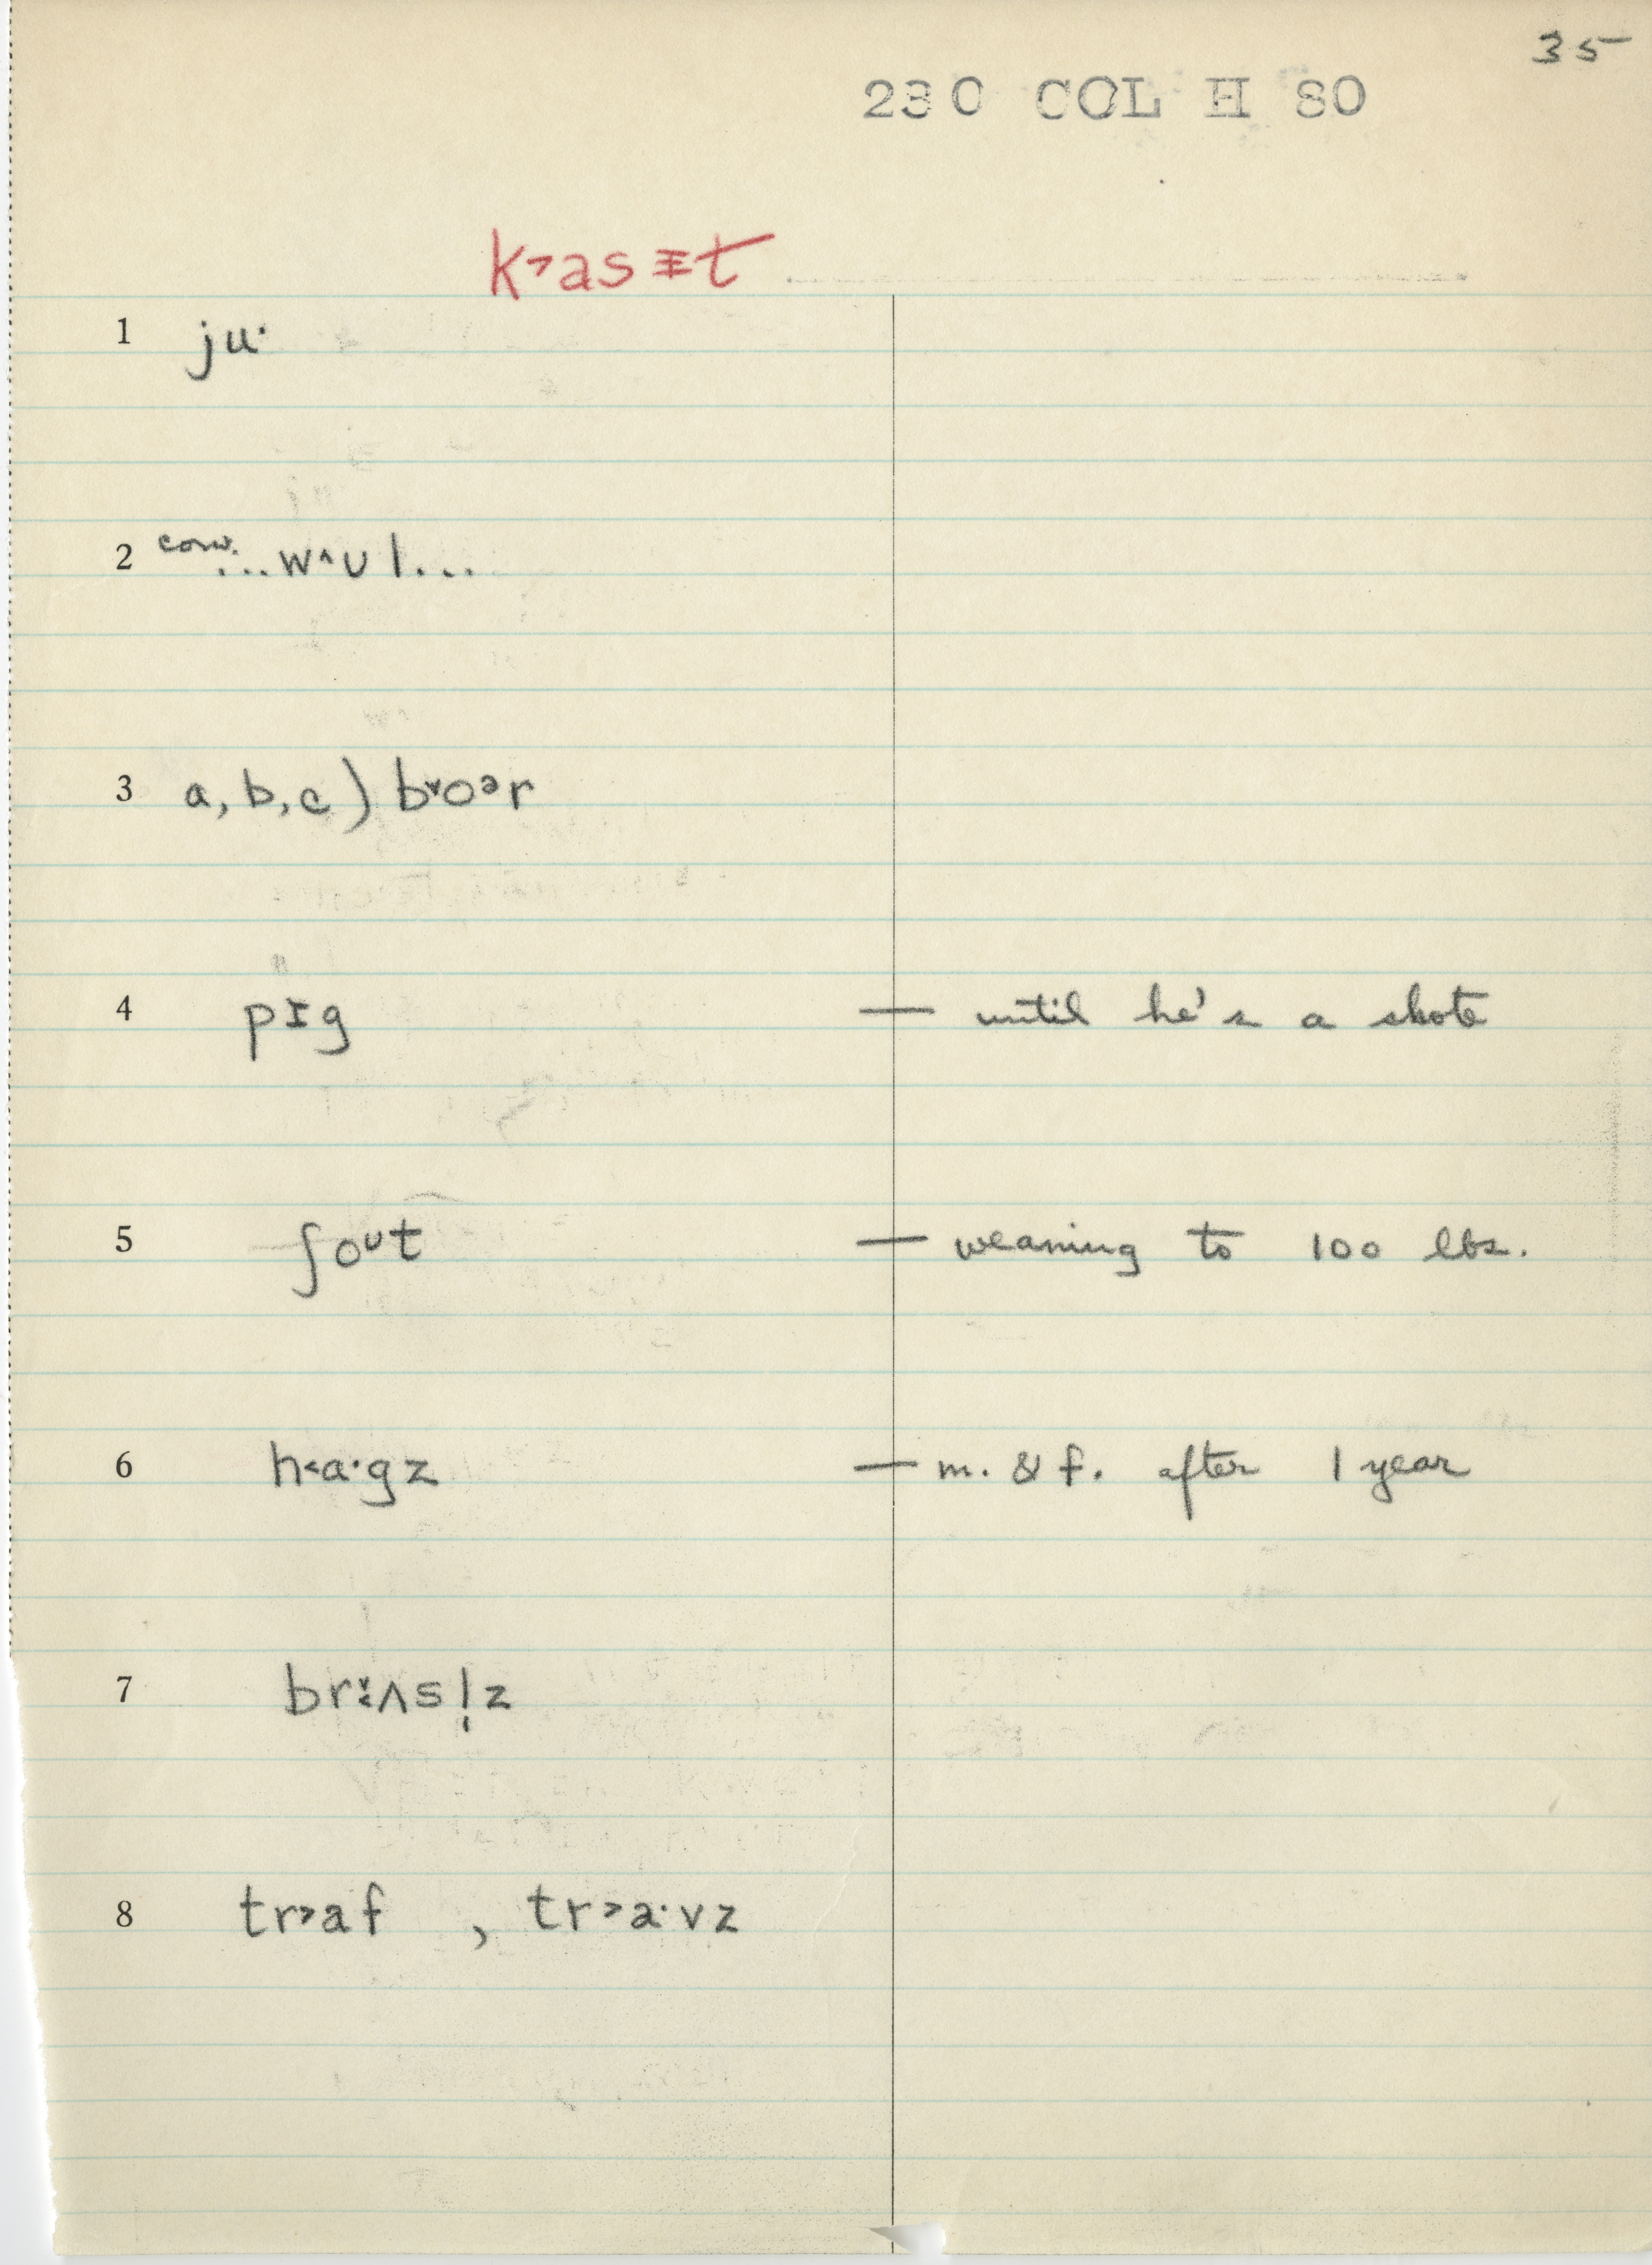 35
230 COL H 80
k˃asᵻt
1 ju·
2 conv. ...w^ʊl...
3 a, b, c) b˅oᵊr
4 pɪg — until he's a shote
5 ʃoᶷt — weaning to 100 lbs.
6 h˂a·gz — m. & f. after 1 year
7 brʌsl̩z
8 tr˃af , tr˃a·vz